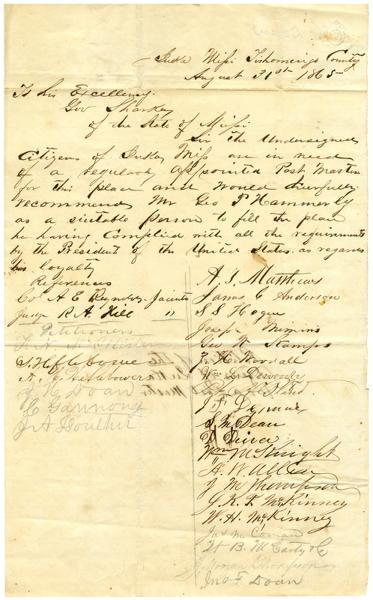 Iuka Missi Tishomingo County
August 31st 1865
To his Excellency
Gov Sharkey
of the State of Missi
Sir the undersigned
Citizens of Iuka Miss are in need
of a regular appointed Post Master
for this place and would cheerfully
recommend Mr Geo P Hammerly
as a suitable person to fill the place
he having complied with all the requirements
by the President of the United States. as regards
his loyalty
References
Col A E Reynolds Jacinto
Judge R. A. Hill "
Petitioners
J. G. Doan
C Gannon
J A
A. S. Matthews
James G Anderson
S S Hogue
Joseph
Geo W Stamps
Wm
S. M. Dean
Wm McKnight
H. W. Allen
J M Thompson
G. K. F. McKinney
W. H. McKinney
Jas M
H B McCarty
Thompson
Jno F Doan